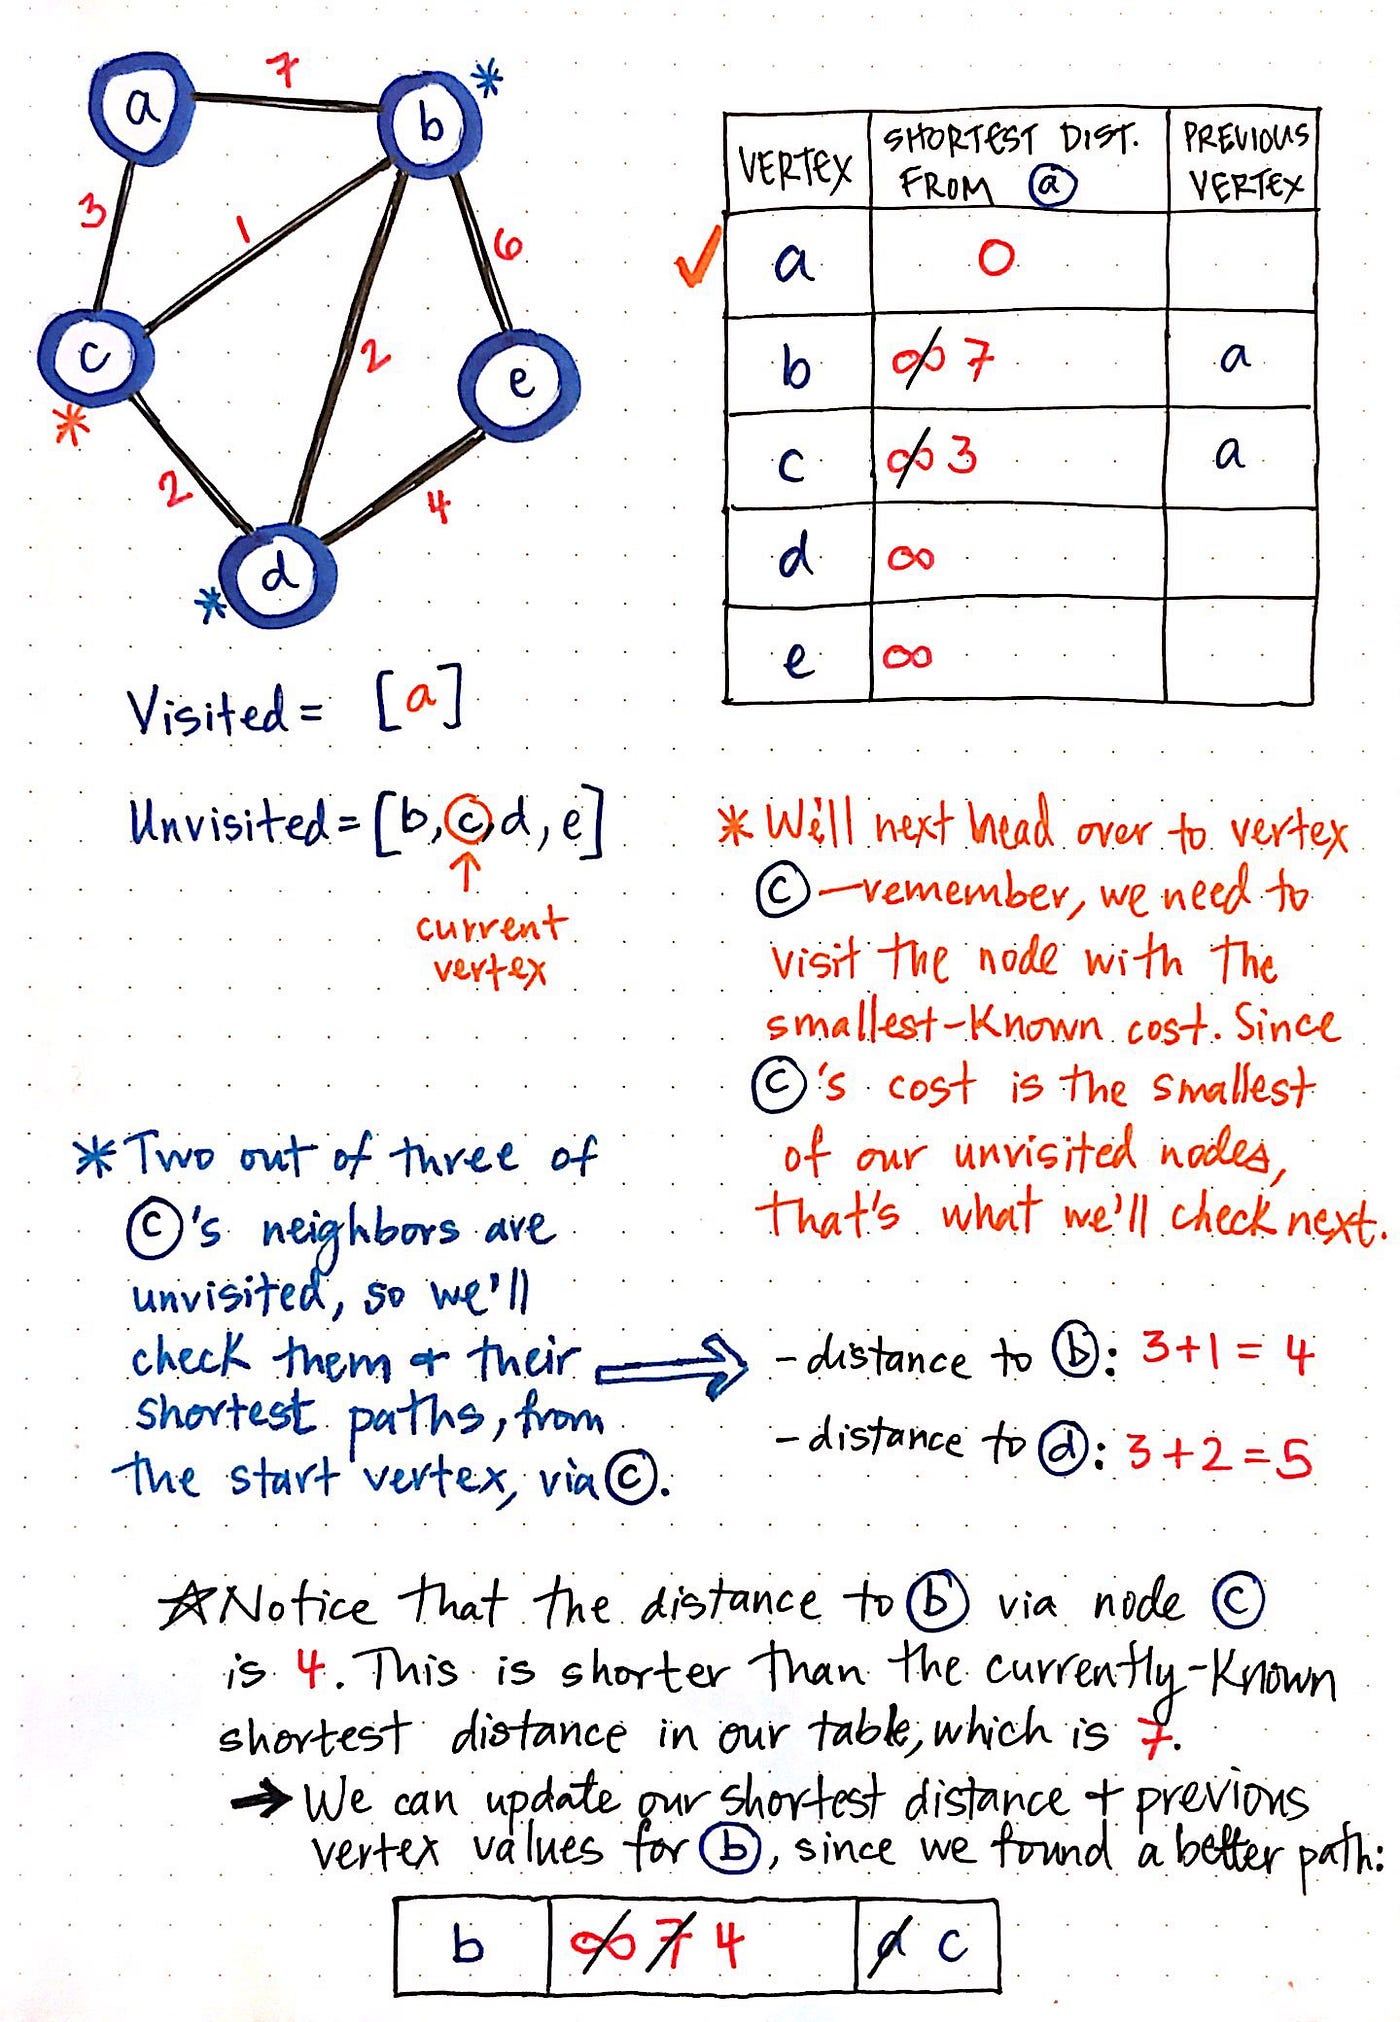 a
7
b
*
3
1
6
c
*
2
e
2
4
d
*
VERTEX
SHORTEST DIST.
FROM a
PREVIOUS
VERTEX
✓ a 0
b ∞ 7 a
c ∞ 3 a
d ∞
e ∞
Visited = [a]
Unvisited = [b, c, d, e]
↑
current
vertex
* We'll next head over to vertex
c — remember, we need to
visit the node with the
smallest-known cost. Since
c's cost is the smallest
of our unvisited nodes,
that's what we'll check next.
* Two out of three of
c's neighbors are
unvisited, so we'll
check them + their
shortest paths, from
the start vertex, via c.
- distance to b: 3+1 = 4
- distance to d: 3+2 = 5
☆ Notice that the distance to b via node c
is 4. This is shorter than the currently-known
shortest distance in our table, which is 7.
→ We can update our shortest distance + previous
vertex values for b, since we found a better path:
b ∞ 7 4 a c